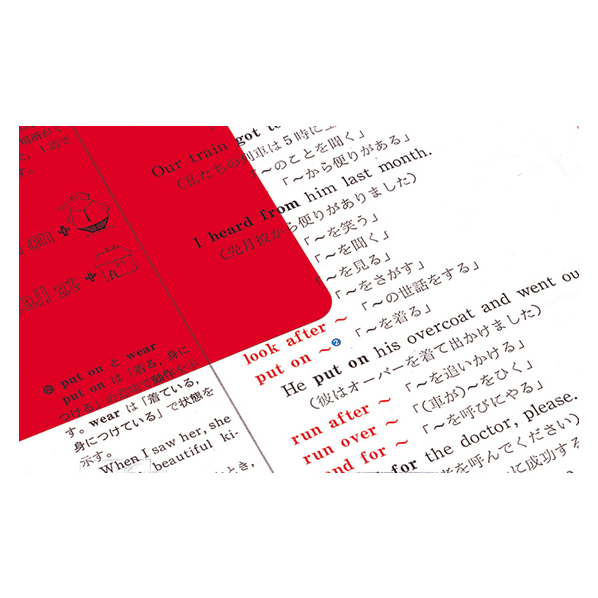 got to
Our train
（私たちの列車は５時に
「～のことを聞く」
「～から便りがある」
I heard from him last month.
（先月彼から便りがありました）
「～を笑う」
「～を聞く」
「～を見る」
「～をさがす」
look after ～ 「～の世話をする」
put on ～❷ 「～を着る」
He put on his overcoat and went ou
（彼はオーバーを着て出かけました）
run after ～ 「～を追いかける」
run over ～ 「(車が)～をひく」
nd for ～ 「～を呼びにやる」
for the doctor, please.
を呼んでください）
に成功する
❷ put on と wear
put on は「着る, 身に
つける」
す。wear は「着ている,
身につけている」で状態を
示す。
When I saw her, she
beautiful ki-
とき,